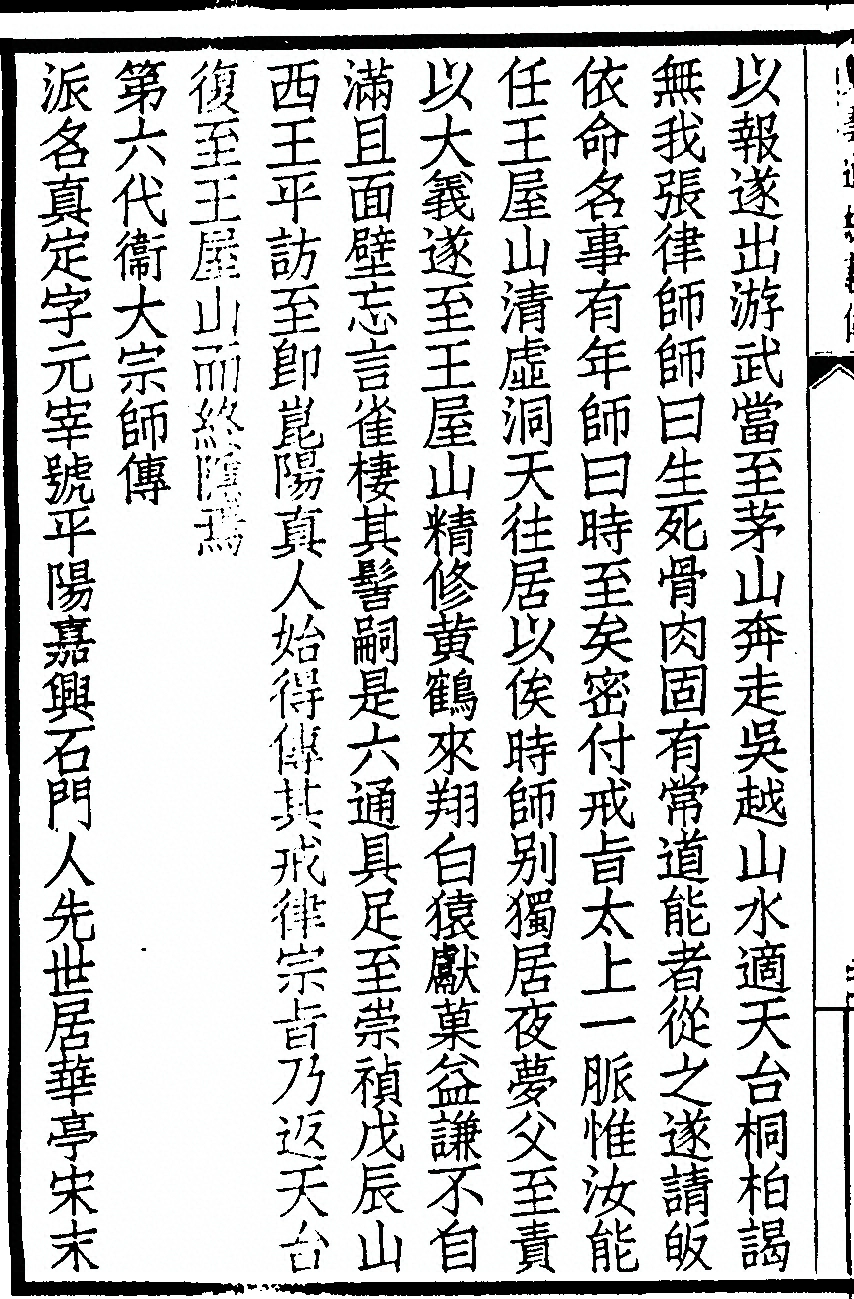 以報遂出游武當至茅山奔走吳越山水適天台桐柏謁
無我張律師師曰生死骨肉固有常道能者從之遂請皈
依命名事有年師曰時至矣密付戒旨太上一脈惟汝能
任王屋山清虛洞天往居以俟時師別獨居夜夢父至責
以大義遂至王屋山精修黄鶴來翔白猿獻菓益謙不自
滿且面壁忘言雀棲其髻嗣是六通具足至崇禎戊辰山
西王平訪至卽崑陽真人始得傳其戒律宗旨乃返天台
復至王屋山而終隱焉
第六代衞大宗師傳
派名真定字元宰號平陽嘉興石門人先世居華亭宋末